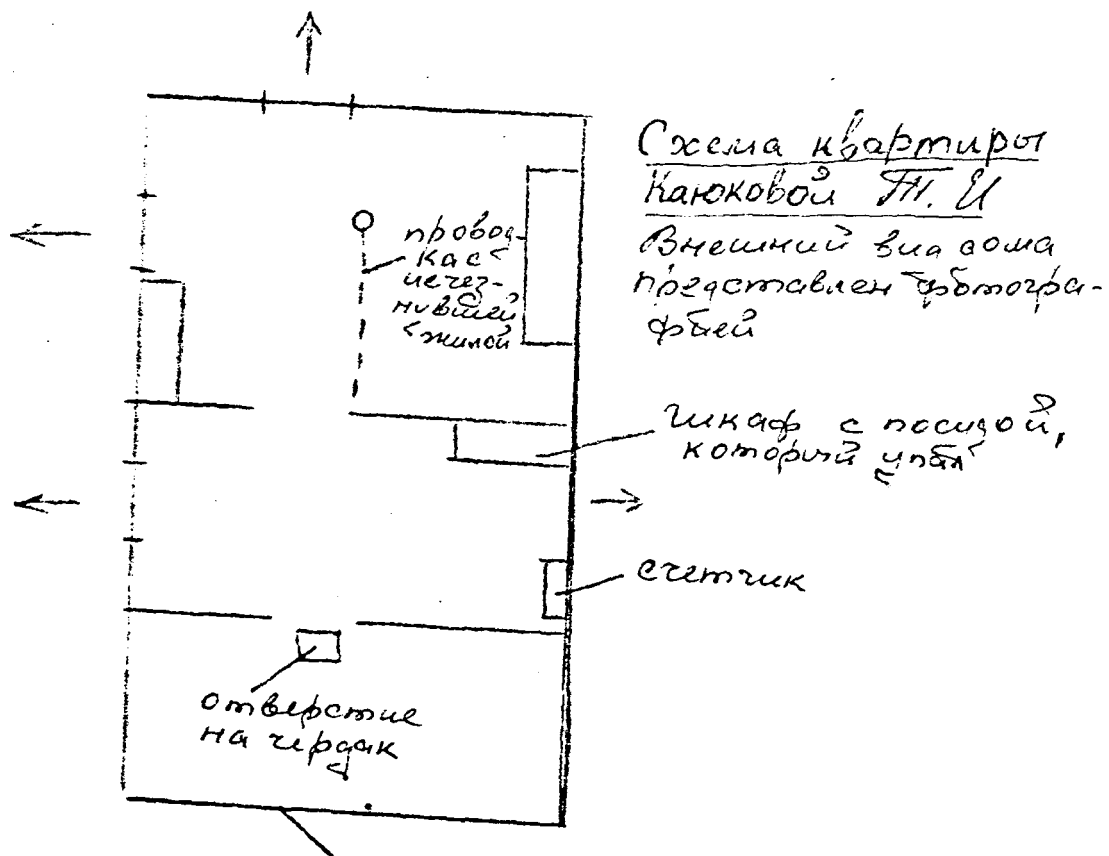 Схема квартиры
Каюковой Т. И
Внешний вид дома
представлен фотогра-
фией
провод-
ка с
исчез-
нувшей
жилой
шкаф с посудой,
который упал
счетчик
отверстие
на чердак